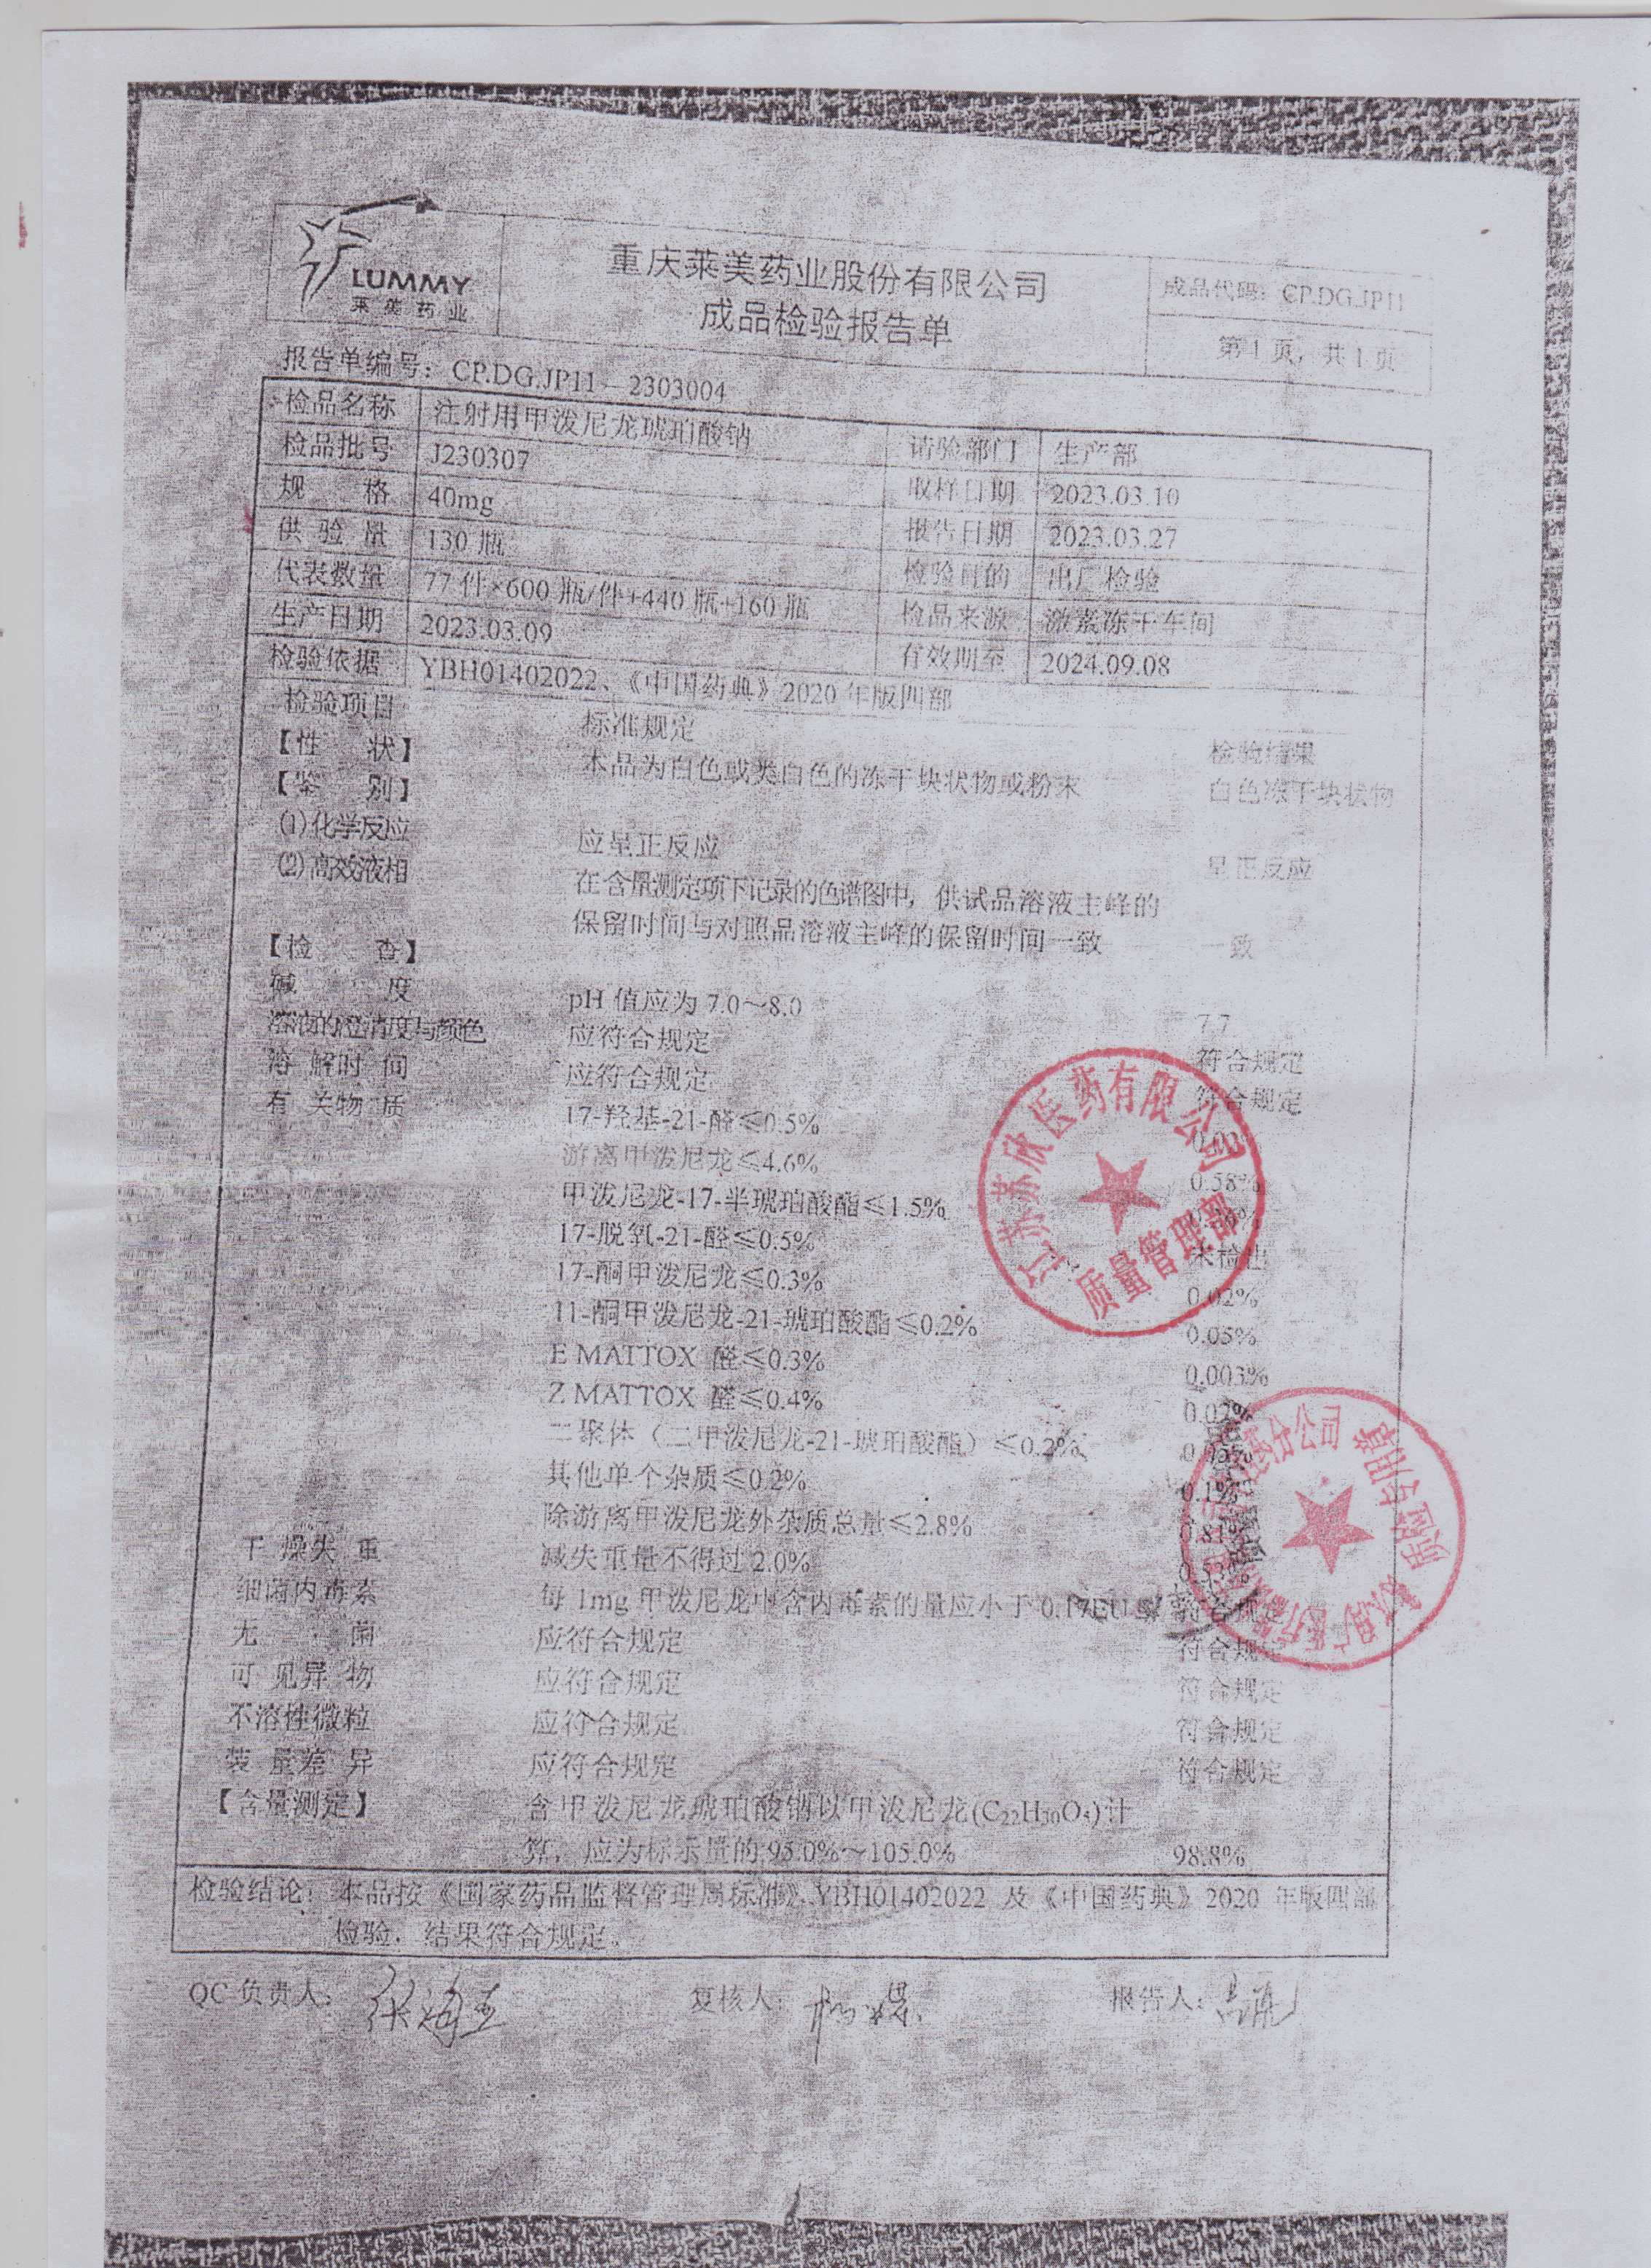 LUMMY
莱美药业
重庆莱美药业股份有限公司
成品检验报告单
成品代码：CP.DG.JP11
第1页，共1页
报告单编号：CP.DG.JP11—2303004
检品名称 注射用甲泼尼龙琥珀酸钠 请验部门 生产部
检品批号 J230307 取样日期 2023.03.10
规 格 40mg 报告日期 2023.03.27
供 验 量 130 瓶 检验目的 出厂检验
代表数量 77 件×600 瓶/件+440 瓶+160 瓶 检品来源 激素冻干车间
生产日期 2023.03.09 有效期至 2024.09.08
检验依据 YBH01402022、《中国药典》2020 年版四部
检验项目 标准规定 检验结果
【性 状】 本品为白色或类白色的冻干块状物或粉末 白色冻干块状物
【鉴 别】
(1)化学反应 应呈正反应 呈正反应
(2)高效液相 在含量测定项下记录的色谱图中，供试品溶液主峰的
保留时间与对照品溶液主峰的保留时间一致 一致
【检 查】
碱 度 pH 值应为 7.0～8.0 7.7
溶液的澄清度与颜色 应符合规定 符合规定
溶 解时 间 应符合规定 符合规定
有 关物 质 17-羟基-21-醛≤0.5%
游离甲泼尼龙≤4.6% 0.58%
甲泼尼龙-17-半琥珀酸酯≤1.5%
17-脱氧-21-醛≤0.5% 未检出
17-酮甲泼尼龙≤0.3% 0.02%
11-酮甲泼尼龙-21-琥珀酸酯≤0.2% 0.05%
E MATTOX 醛≤0.3% 0.003%
Z MATTOX 醛≤0.4% 0.02%
二聚体（二甲泼尼龙-21-琥珀酸酯）≤0.2%
其他单个杂质≤0.2% 0.1%
除游离甲泼尼龙外杂质总量≤2.8% 0.81%
干 燥失 重 减失重量不得过 2.0%
细菌内毒素 每 1mg 甲泼尼龙中含内毒素的量应小于 0.17EU 符合规定
无 菌 应符合规定 符合规定
可 见异 物 应符合规定 符合规定
不溶性微粒 应符合规定 符合规定
装 量差 异 应符合规定 符合规定
【含量测定】 含甲泼尼龙琥珀酸钠以甲泼尼龙(C₂₂H₃₀O₅)计
算，应为标示量的 95.0%～105.0% 98.8%
检验结论：本品按《国家药品监督管理局标准》YBH01402022 及《中国药典》2020 年版四部
检验，结果符合规定。
QC 负责人： 复核人： 报告人：
江苏苏欣医药有限公司
质量管理部